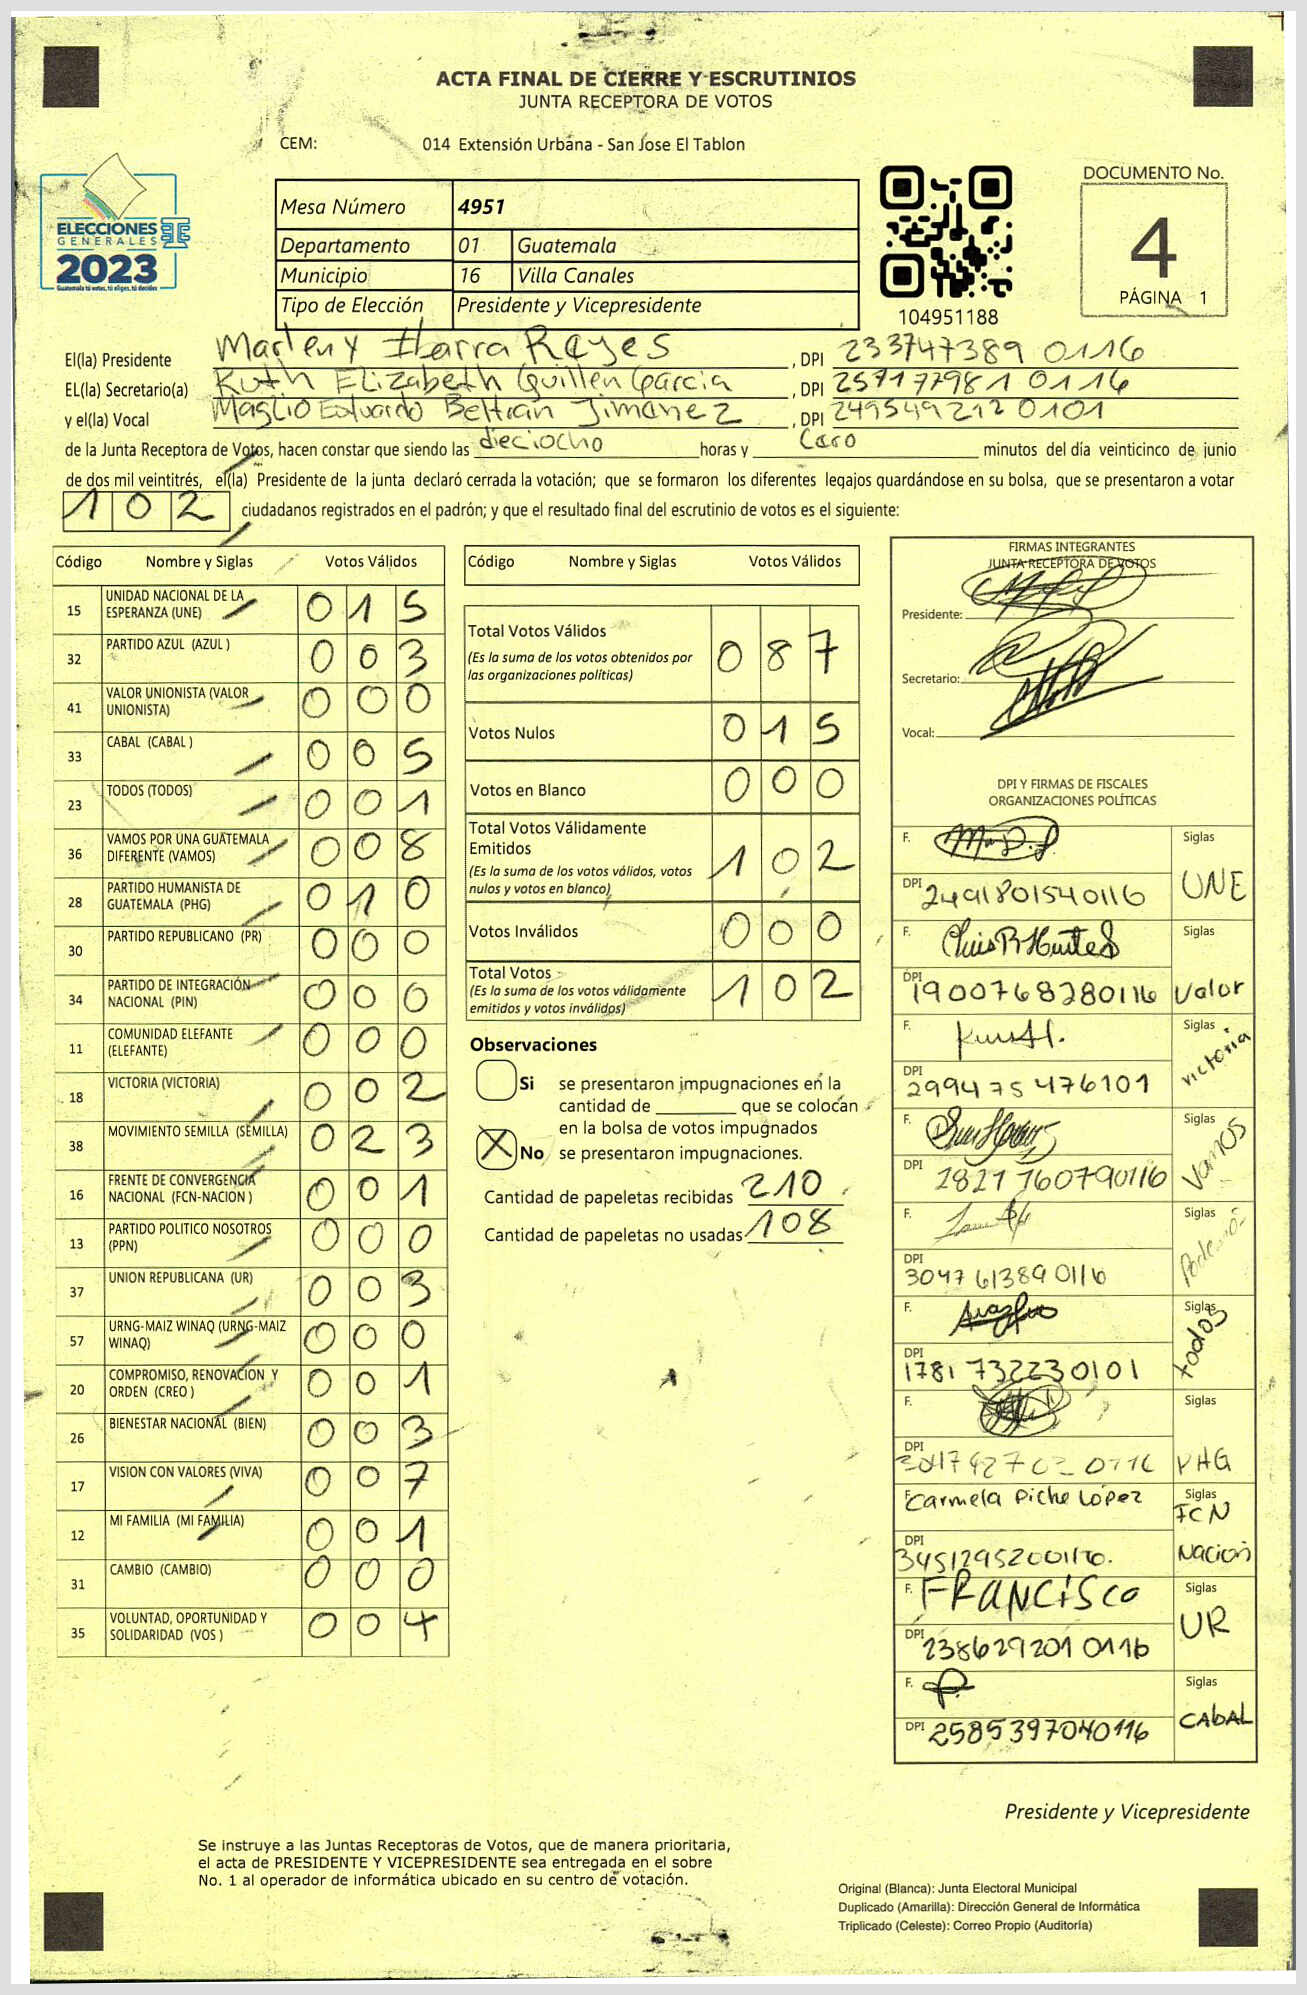 ACTA FINAL DE CIERRE Y ESCRUTINIOS
JUNTA RECEPTORA DE VOTOS
CEM: 014 Extensión Urbana - San Jose El Tablon
ELECCIONES
GENERALES
2023
Guatemala tú votas, tú eliges, tú decides
Mesa Número 4951
Departamento 01 Guatemala
Municipio 16 Villa Canales
Tipo de Elección Presidente y Vicepresidente
104951188
DOCUMENTO No.
4
PÁGINA 1
El(la) Presidente Marleny Ibarra Reyes, DPI 233747389 0116
EL(la) Secretario(a) Ruth Elizabeth Quillen Garcia, DPI 257177981 0116
y el(la) Vocal Maglio Eduardo Beltran Jimenez, DPI 249549212 0101
de la Junta Receptora de Votos, hacen constar que siendo las dieciocho horas y Cero minutos del día veinticinco de junio
de dos mil veintitrés, el(la) Presidente de la junta declaró cerrada la votación; que se formaron los diferentes legajos guardándose en su bolsa, que se presentaron a votar
102 ciudadanos registrados en el padrón; y que el resultado final del escrutinio de votos es el siguiente:
Código Nombre y Siglas Votos Válidos
15 UNIDAD NACIONAL DE LA ESPERANZA (UNE) 015
32 PARTIDO AZUL (AZUL) 003
41 VALOR UNIONISTA (VALOR UNIONISTA) 000
33 CABAL (CABAL) 005
23 TODOS (TODOS) 001
36 VAMOS POR UNA GUATEMALA DIFERENTE (VAMOS) 008
28 PARTIDO HUMANISTA DE GUATEMALA (PHG) 010
30 PARTIDO REPUBLICANO (PR) 000
34 PARTIDO DE INTEGRACIÓN NACIONAL (PIN) 000
11 COMUNIDAD ELEFANTE (ELEFANTE) 000
18 VICTORIA (VICTORIA) 002
38 MOVIMIENTO SEMILLA (SEMILLA) 023
16 FRENTE DE CONVERGENCIA NACIONAL (FCN-NACION) 001
13 PARTIDO POLITICO NOSOTROS (PPN) 000
37 UNION REPUBLICANA (UR) 003
57 URNG-MAIZ WINAQ (URNG-MAIZ WINAQ) 000
20 COMPROMISO, RENOVACION Y ORDEN (CREO) 001
26 BIENESTAR NACIONAL (BIEN) 003
17 VISION CON VALORES (VIVA) 007
12 MI FAMILIA (MI FAMILIA) 001
31 CAMBIO (CAMBIO) 000
35 VOLUNTAD, OPORTUNIDAD Y SOLIDARIDAD (VOS) 004
Código Nombre y Siglas Votos Válidos
Total Votos Válidos 087
(Es la suma de los votos obtenidos por
las organizaciones políticas)
Votos Nulos 015
Votos en Blanco 000
Total Votos Válidamente
Emitidos 102
(Es la suma de los votos válidos, votos
nulos y votos en blanco)
Votos Inválidos 000
Total Votos 102
(Es la suma de los votos válidamente
emitidos y votos inválidos)
Observaciones
Si se presentaron impugnaciones en la
cantidad de ________ que se colocan
en la bolsa de votos impugnados
X No se presentaron impugnaciones.
Cantidad de papeletas recibidas 210
Cantidad de papeletas no usadas 108
FIRMAS INTEGRANTES
JUNTA RECEPTORA DE VOTOS
Presidente:
Secretario:
Vocal:
DPI Y FIRMAS DE FISCALES
ORGANIZACIONES POLÍTICAS
F. Siglas
DPI 2491801540116 UNE
F. Siglas
DPI 1900768280116 Valor
F. Siglas
DPI 299475476101 victoria
F. Siglas
DPI 2827760790116 Vamos
F. Siglas
DPI 3047613890116
F. Siglas
DPI 1781732230101 todos
F. Siglas
DPI PHG
F. Carmela Piche López Siglas
DPI FCN Nacion
F. FRANCISCO Siglas
DPI 238629201 0116 UR
F. Siglas
DPI 2585397040116 CABAL
Presidente y Vicepresidente
Se instruye a las Juntas Receptoras de Votos, que de manera prioritaria,
el acta de PRESIDENTE Y VICEPRESIDENTE sea entregada en el sobre
No. 1 al operador de informática ubicado en su centro de votación.
Original (Blanca): Junta Electoral Municipal
Duplicado (Amarilla): Dirección General de Informática
Triplicado (Celeste): Correo Propio (Auditoría)